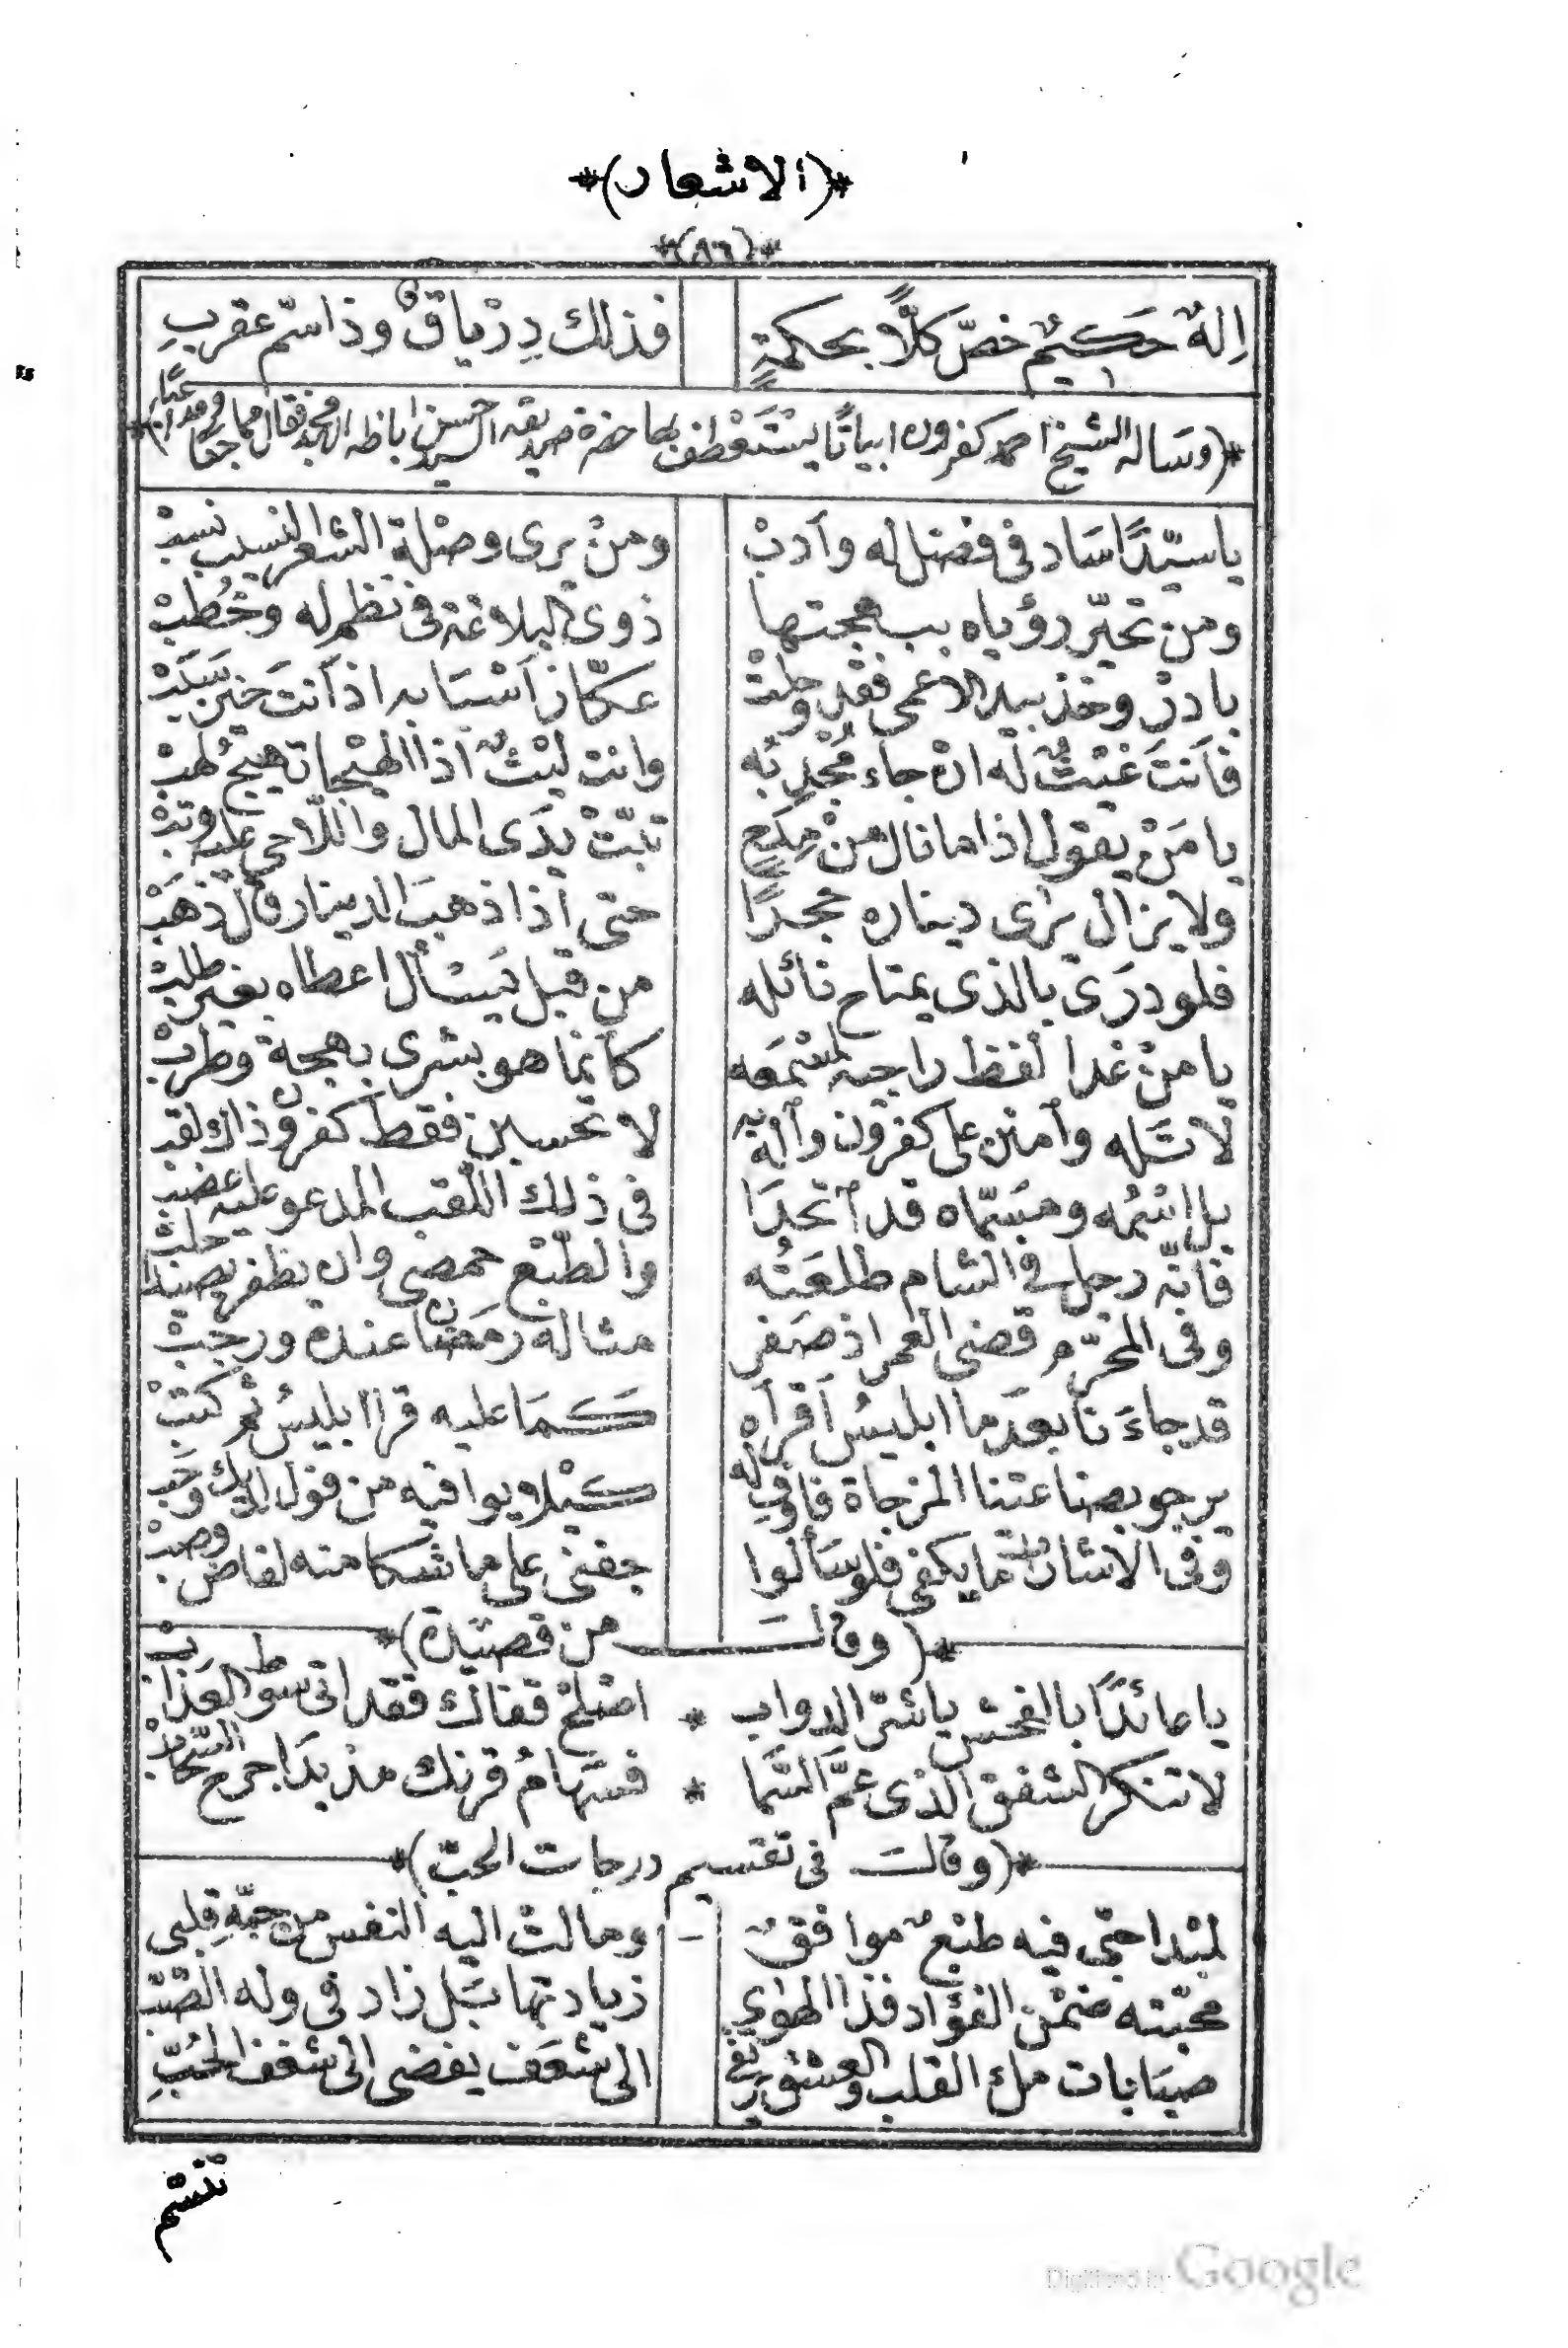 *(الاشعار)*
*(٨٦)*
اِلهٌ حَكيمٌ خصّ كلاًّ بحكمةٍ فذلك دِرْياقٌ وذا سمّ عقربِ
*(وسَاله الشيخ احمد كفرون ابياتًا يستَعْطف بها حضرة صديقه السيد حسن اباظه فقال مما جنا)*
يا سيّدًا سَاد فى فضل له وأدبْ ومنْ يرى وصْلة الشعر النسيب نسبْ
ومن تحيّر رؤياه ببهجتها ذوى البلاغة فى نظم له وخُطبْ
بادرْ وخذ بيد الاعمى فقد وَلجتْ عكّاز أسْبَابه اذ أنتَ خير سَببْ
فأنتَ غيْثٌ لَه انْ جاء مُجْدِبُه وانت ليْثٌ اذا الهيْجا تهيج لهبْ
يا مَنْ يقول اذا ما نال منْ مِدَحٍ تبّتْ يدَى المال واللّاحى عليه وتبْ
ولا يزال يَرى ديناره حجرًا حتى اذا ذهبَ الدينار قال ذهَبْ
فلو درَى بالذى يمتاح نائله من قبل يَسْأل اعطاه بغير طلبْ
يا منْ غدا لفظ راجيه لمَسْمَعه كأنما هو بشرى بهجة وطربْ
لا تسَله وأمنن على كفرون وآلهِ به لا تحسبن فقط كفرون ذاك لقبْ
بل اسْمُه ومسَمّاه قد أتحدَا فى ذلك اللّقب المدعو عليه غضبْ
فانّه رجل فى الشام طلعَتُه والطّبْع حمصى وان يظفر يصيد حلبْ
وفى المحرّم قضى العمر اذ صَفر مثاله رمَضان عنده ورجبْ
قد جاءَ نا بعدَ ما ابليسُ أقرأه كَمَا عليه قرا ابليسُ ثم كتبْ
يرجو بضاعتنا المزجاة فاوف له كيْلا يوافيه من قول اليك وجَبْ
وفى الاشارات ما يكفى فلو سَألوا جفنى على ما شكا منه لفاض وصبْ
*(وقالَ من قصيْدة)*
يا عائدًا بالفحش يا شرّ الدواب * اصْلحْ قفاك فقد اتى سوط العَذابْ
لا تنكر الشفق الذى عمَّ السَّما * فسَهَامُ قرنك مذ بدَا جرح السَّحابْ
*(وقالَ فى تقسيم درجات الحبّ)*
لمبْدا حبّى فيه طبْعٌ موافقٌ ومالتْ اليه النفس من حبّةِ قلبى
محبّته ضمْن الفؤاد فذا الهوى زيادتها بَل زاد فى وله الصّبّ
صبَابات ملء القلب والعشق يرتقى الى شعَف يفضى الى شغف الحُبِّ
تتيّم
Digitized by Google